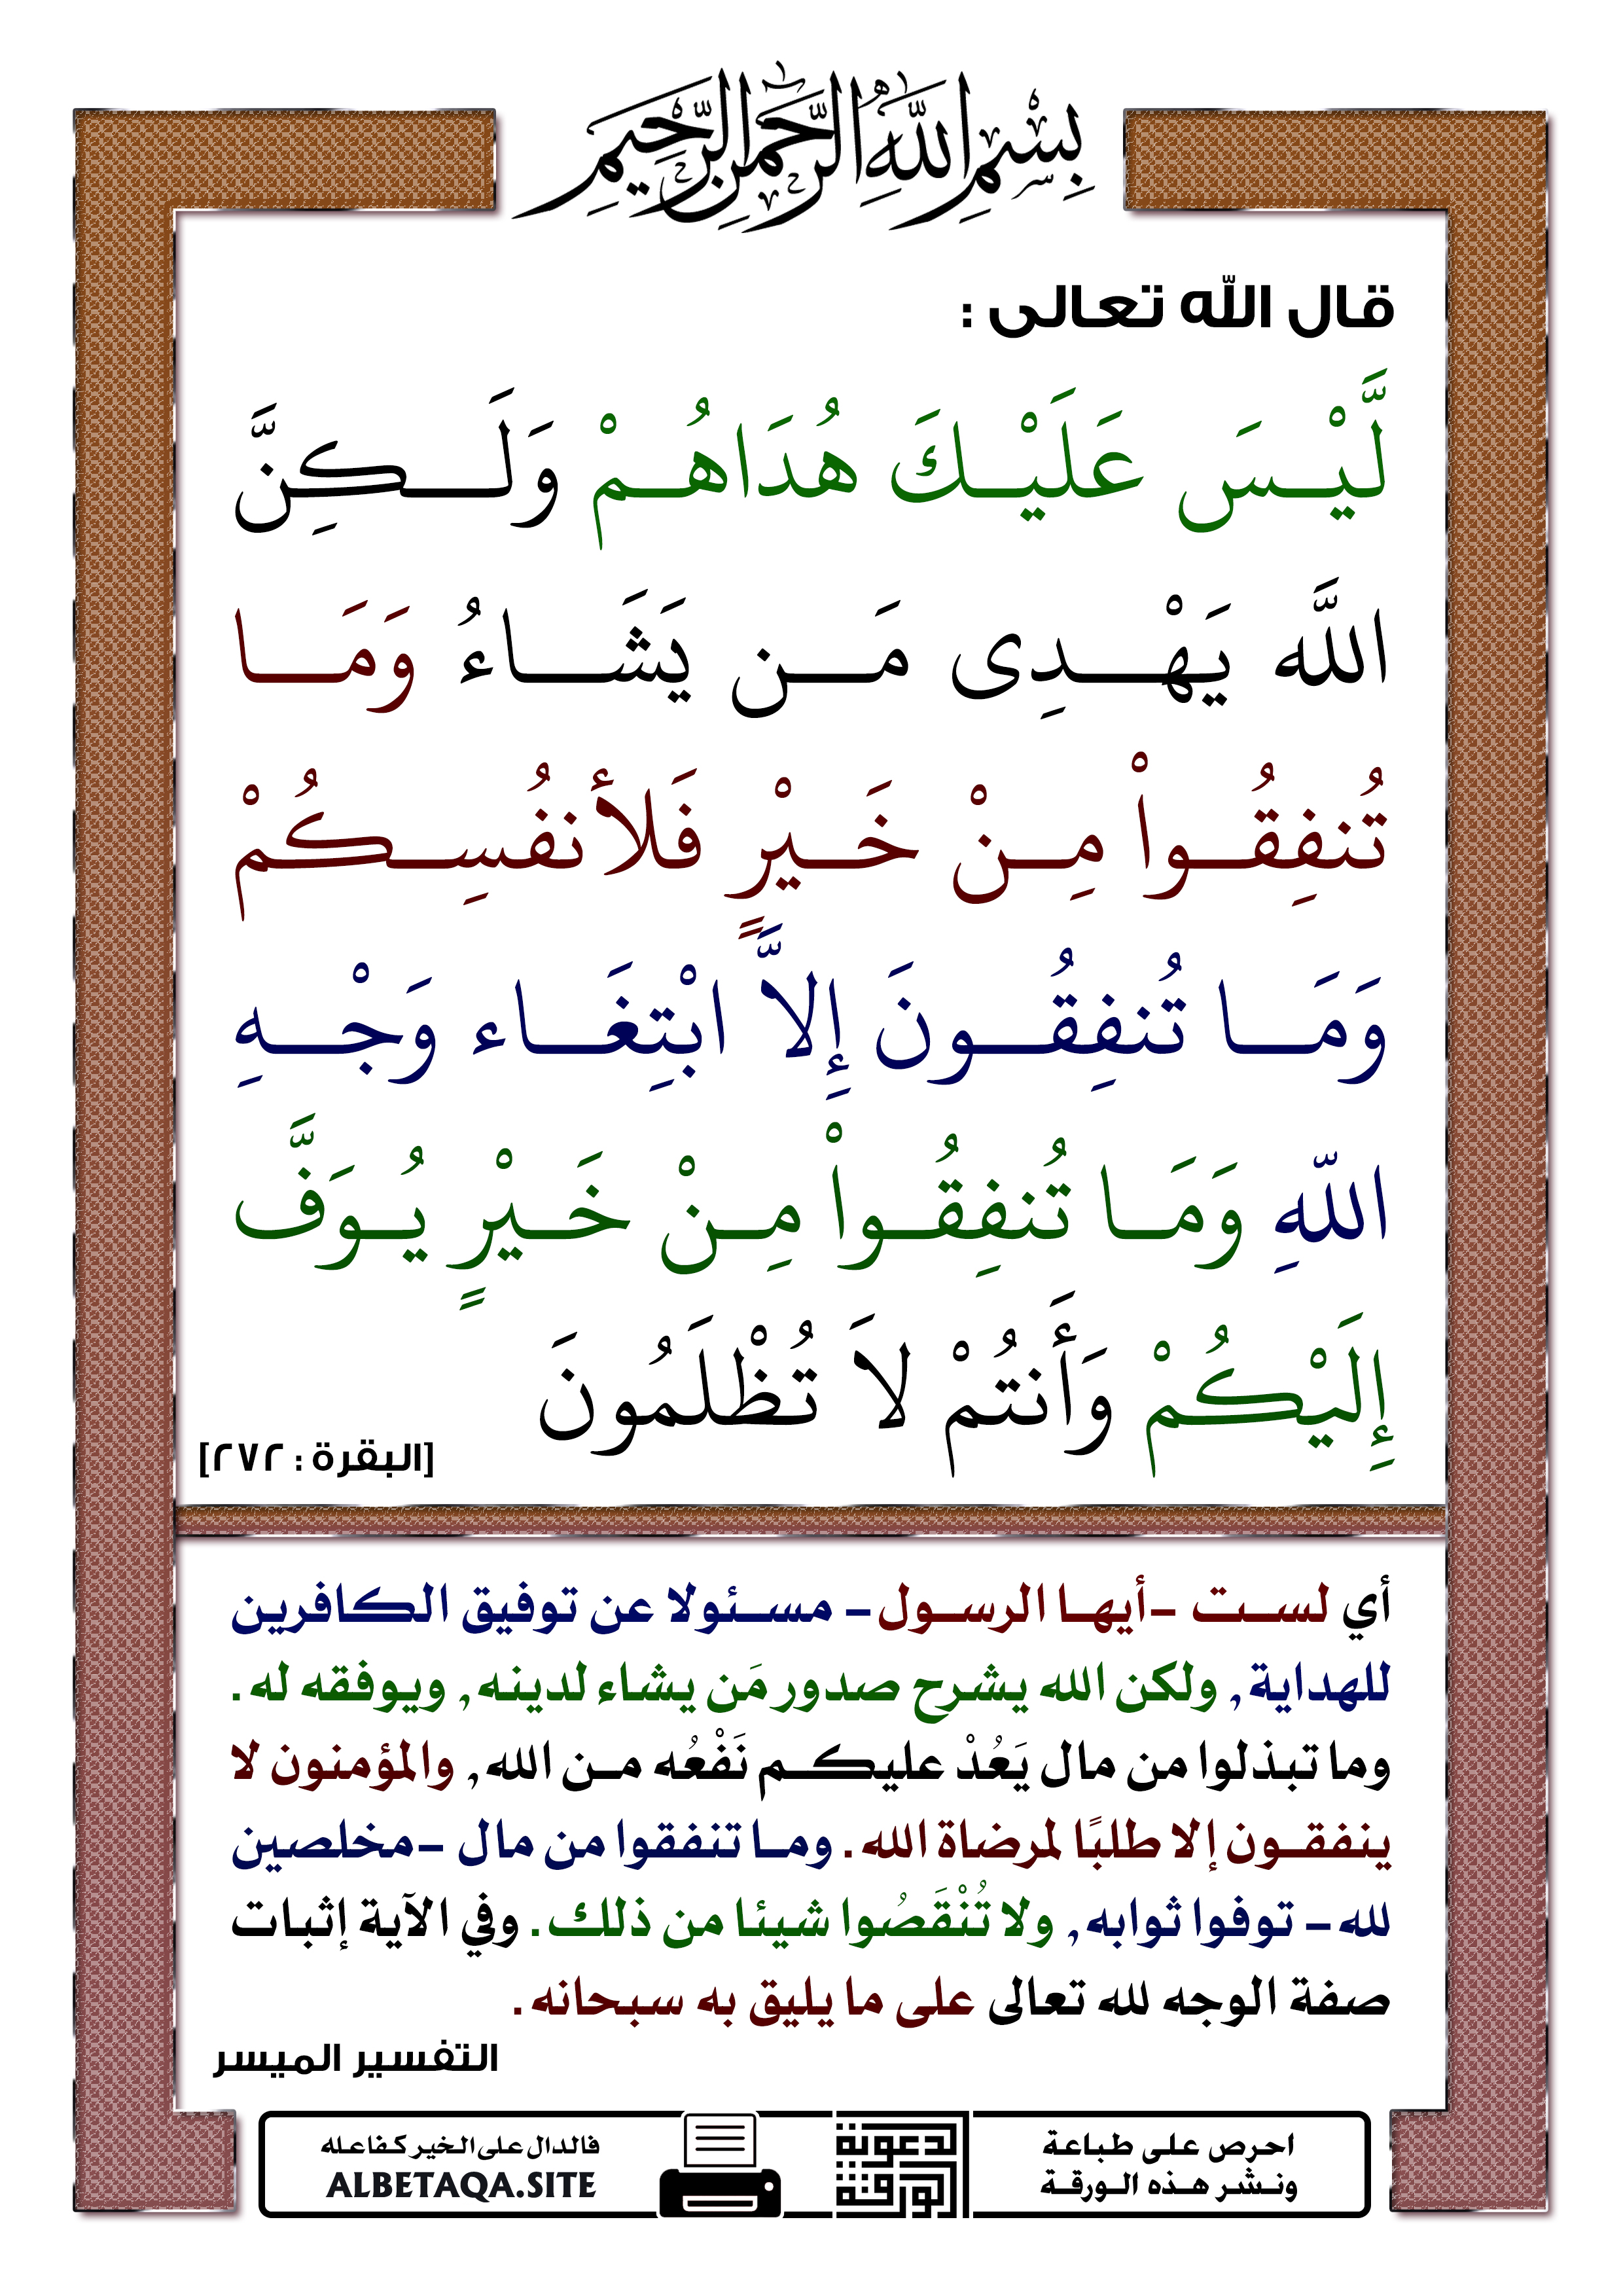 بِسْمِ اللَّهِ الرَّحْمَٰنِ الرَّحِيمِ
قال الله تعالى :
لَّيْسَ عَلَيْكَ هُدَاهُمْ وَلَكِنَّ
اللَّه يَهْدِى مَن يَشَاءُ وَمَا
تُنفِقُواْ مِنْ خَيْرٍ فَلأنفُسِكُمْ
وَمَا تُنفِقُونَ إِلاَّ ابْتِغَاء وَجْهِ
اللّهِ وَمَا تُنفِقُواْ مِنْ خَيْرٍ يُوَفَّ
إِلَيْكُمْ وَأَنتُمْ لاَ تُظْلَمُونَ
[البقرة : ٢٧٢]
أي لست -أيها الرسول- مسئولا عن توفيق الكافرين
للهداية, ولكن الله يشرح صدور مَن يشاء لدينه, ويوفقه له.
وما تبذلوا من مال يَعُدْ عليكم نَفْعُه من الله, والمؤمنون لا
ينفقون إلا طلبًا لمرضاة الله. وما تنفقوا من مال -مخلصين
لله- توفوا ثوابه, ولا تُنْقَصُوا شيئا من ذلك. وفي الآية إثبات
صفة الوجه لله تعالى على ما يليق به سبحانه.
التفسير الميسر
احرص على طباعة
ونشر هذه الورقة
الدعوية
الورقة
فالدال على الخير كفاعله
ALBETAQA.SITE